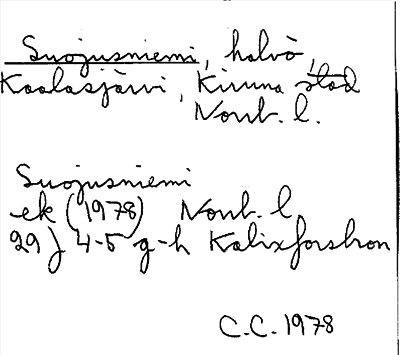 Suojusniemi, halvö,
Kaalasjärvi, Kiruna stad
Norrb. l.
Suojusniemi
ek (1978) Norrb. l
29 J 4-5 g-h Kalixforsbron
C.C. 1978